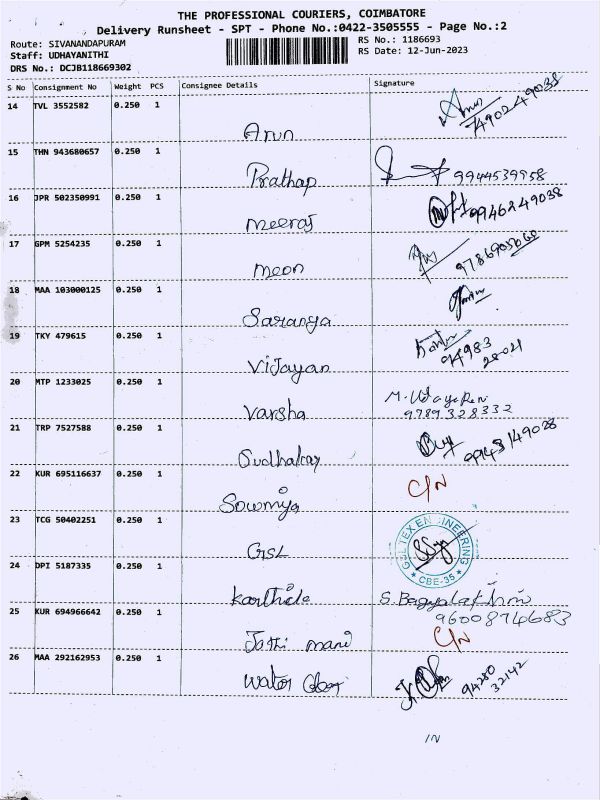 THE PROFESSIONAL COURIERS, COIMBATORE
Delivery Runsheet - SPT - Phone No.:0422-3505555 - Page No.:2
Route: SIVANANDAPURAM
Staff: UDHAYANITHI
DRS No.: DCJB118669302
RS No.: 1186693
RS Date: 12-Jun-2023
S No Consignment No Weight PCS Consignee Details Signature
14 TVL 3552582 0.250 1
Arun 7490249038
15 THN 943680657 0.250 1
Prathap 9944539958
16 JPR 502350991 0.250 1
meeraj 9946249038
17 GPM 5254235 0.250 1
meon 9786905060
18 MAA 103000125 0.250 1
Saranya
19 TKY 479615 0.250 1
Vijayan 94983
28021
20 MTP 1233025 0.250 1
Varsha M. Udayaken
9789328332
21 TRP 7527588 0.250 1
Sudhakar 9943149028
22 KUR 695116637 0.250 1
Sowmiya C/N
23 TCG 50402251 0.250 1
GSL
GOLTEX ENGINEERING
* CBE-35 *
24 DPI 5187335 0.250 1
Karthick S. Bagyalakshmi
9600874683
25 KUR 694966642 0.250 1
Jothi mani C/N
26 MAA 292162953 0.250 1
Water 94280
32142
IN